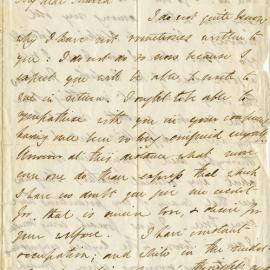 My dear
I do not quite know
why I have not sometimes written to
you: I do not do so now because I
expect you will be able to write to
me in return. I ought to be able to
sympathise with you in your
having once been so long confined myself.
at this distance what more
can one do than express that which
I have no doubt you give me credit
for, that is much love, & desire for
your welfare. I have constant
occupation; and while in the midst